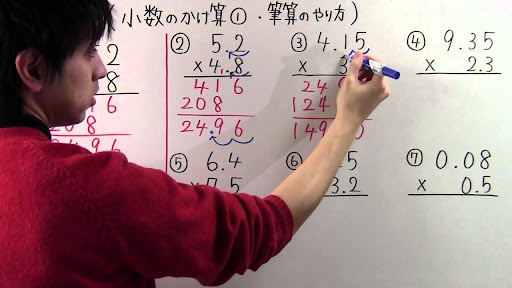 小数のかけ算①・筆算のやり方)
2
8
6
8 6
② 5.2
×4.8
416
208
24.96
③ 4.15
×
24
124
149
④ 9.35
× 2.3
⑤ 6.4
×7.5
⑥
5
3.2
⑦ 0.08
× 0.5